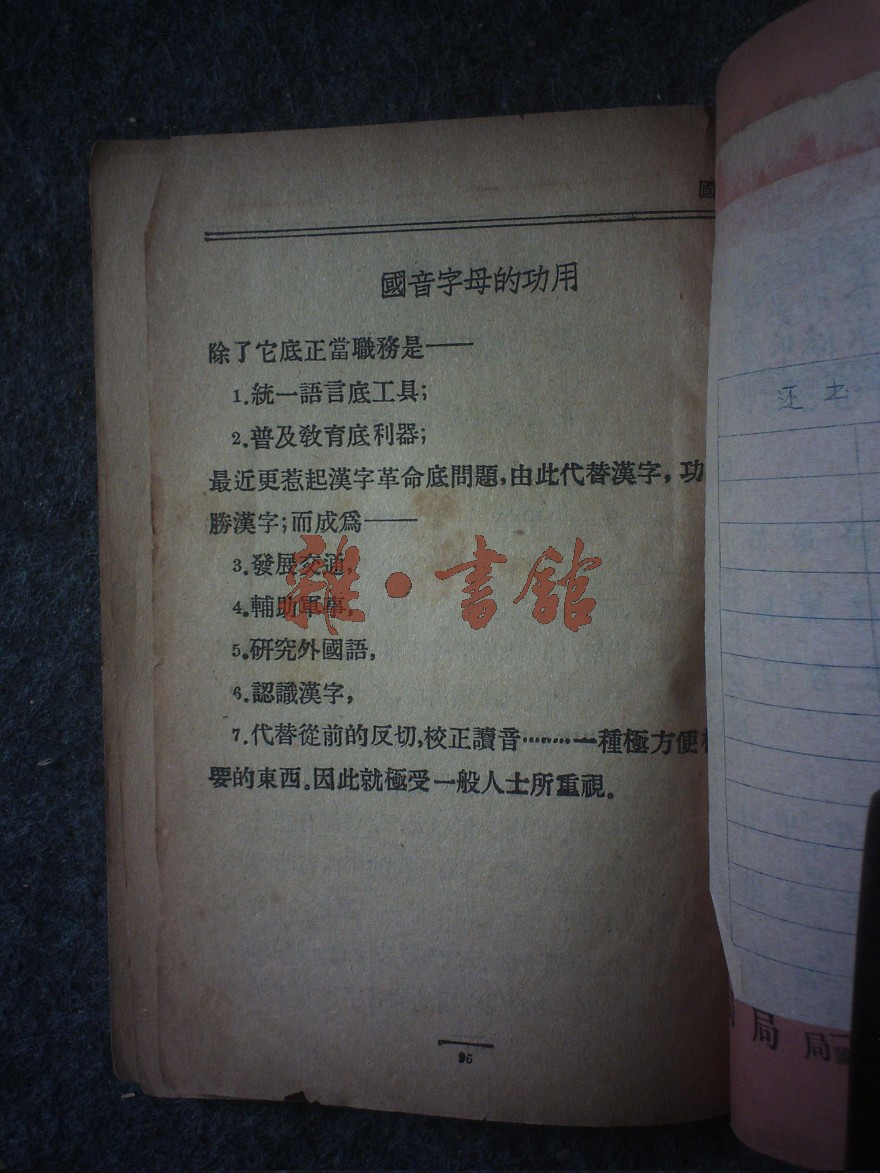 國
國音字母的功用
除了它底正當職務是——
1.統一語言底工具;
2.普及敎育底利器;
最近更惹起漢字革命底問題,由此代替漢字,功
勝漢字;而成爲——
3.發展交通,
4.輔助軍事,
5.研究外國語,
6.認識漢字,
7.代替從前的反切,校正讀音………一種極方便
要的東西。因此就極受一般人士所重視。
96
雜·書館
还 书
局
局